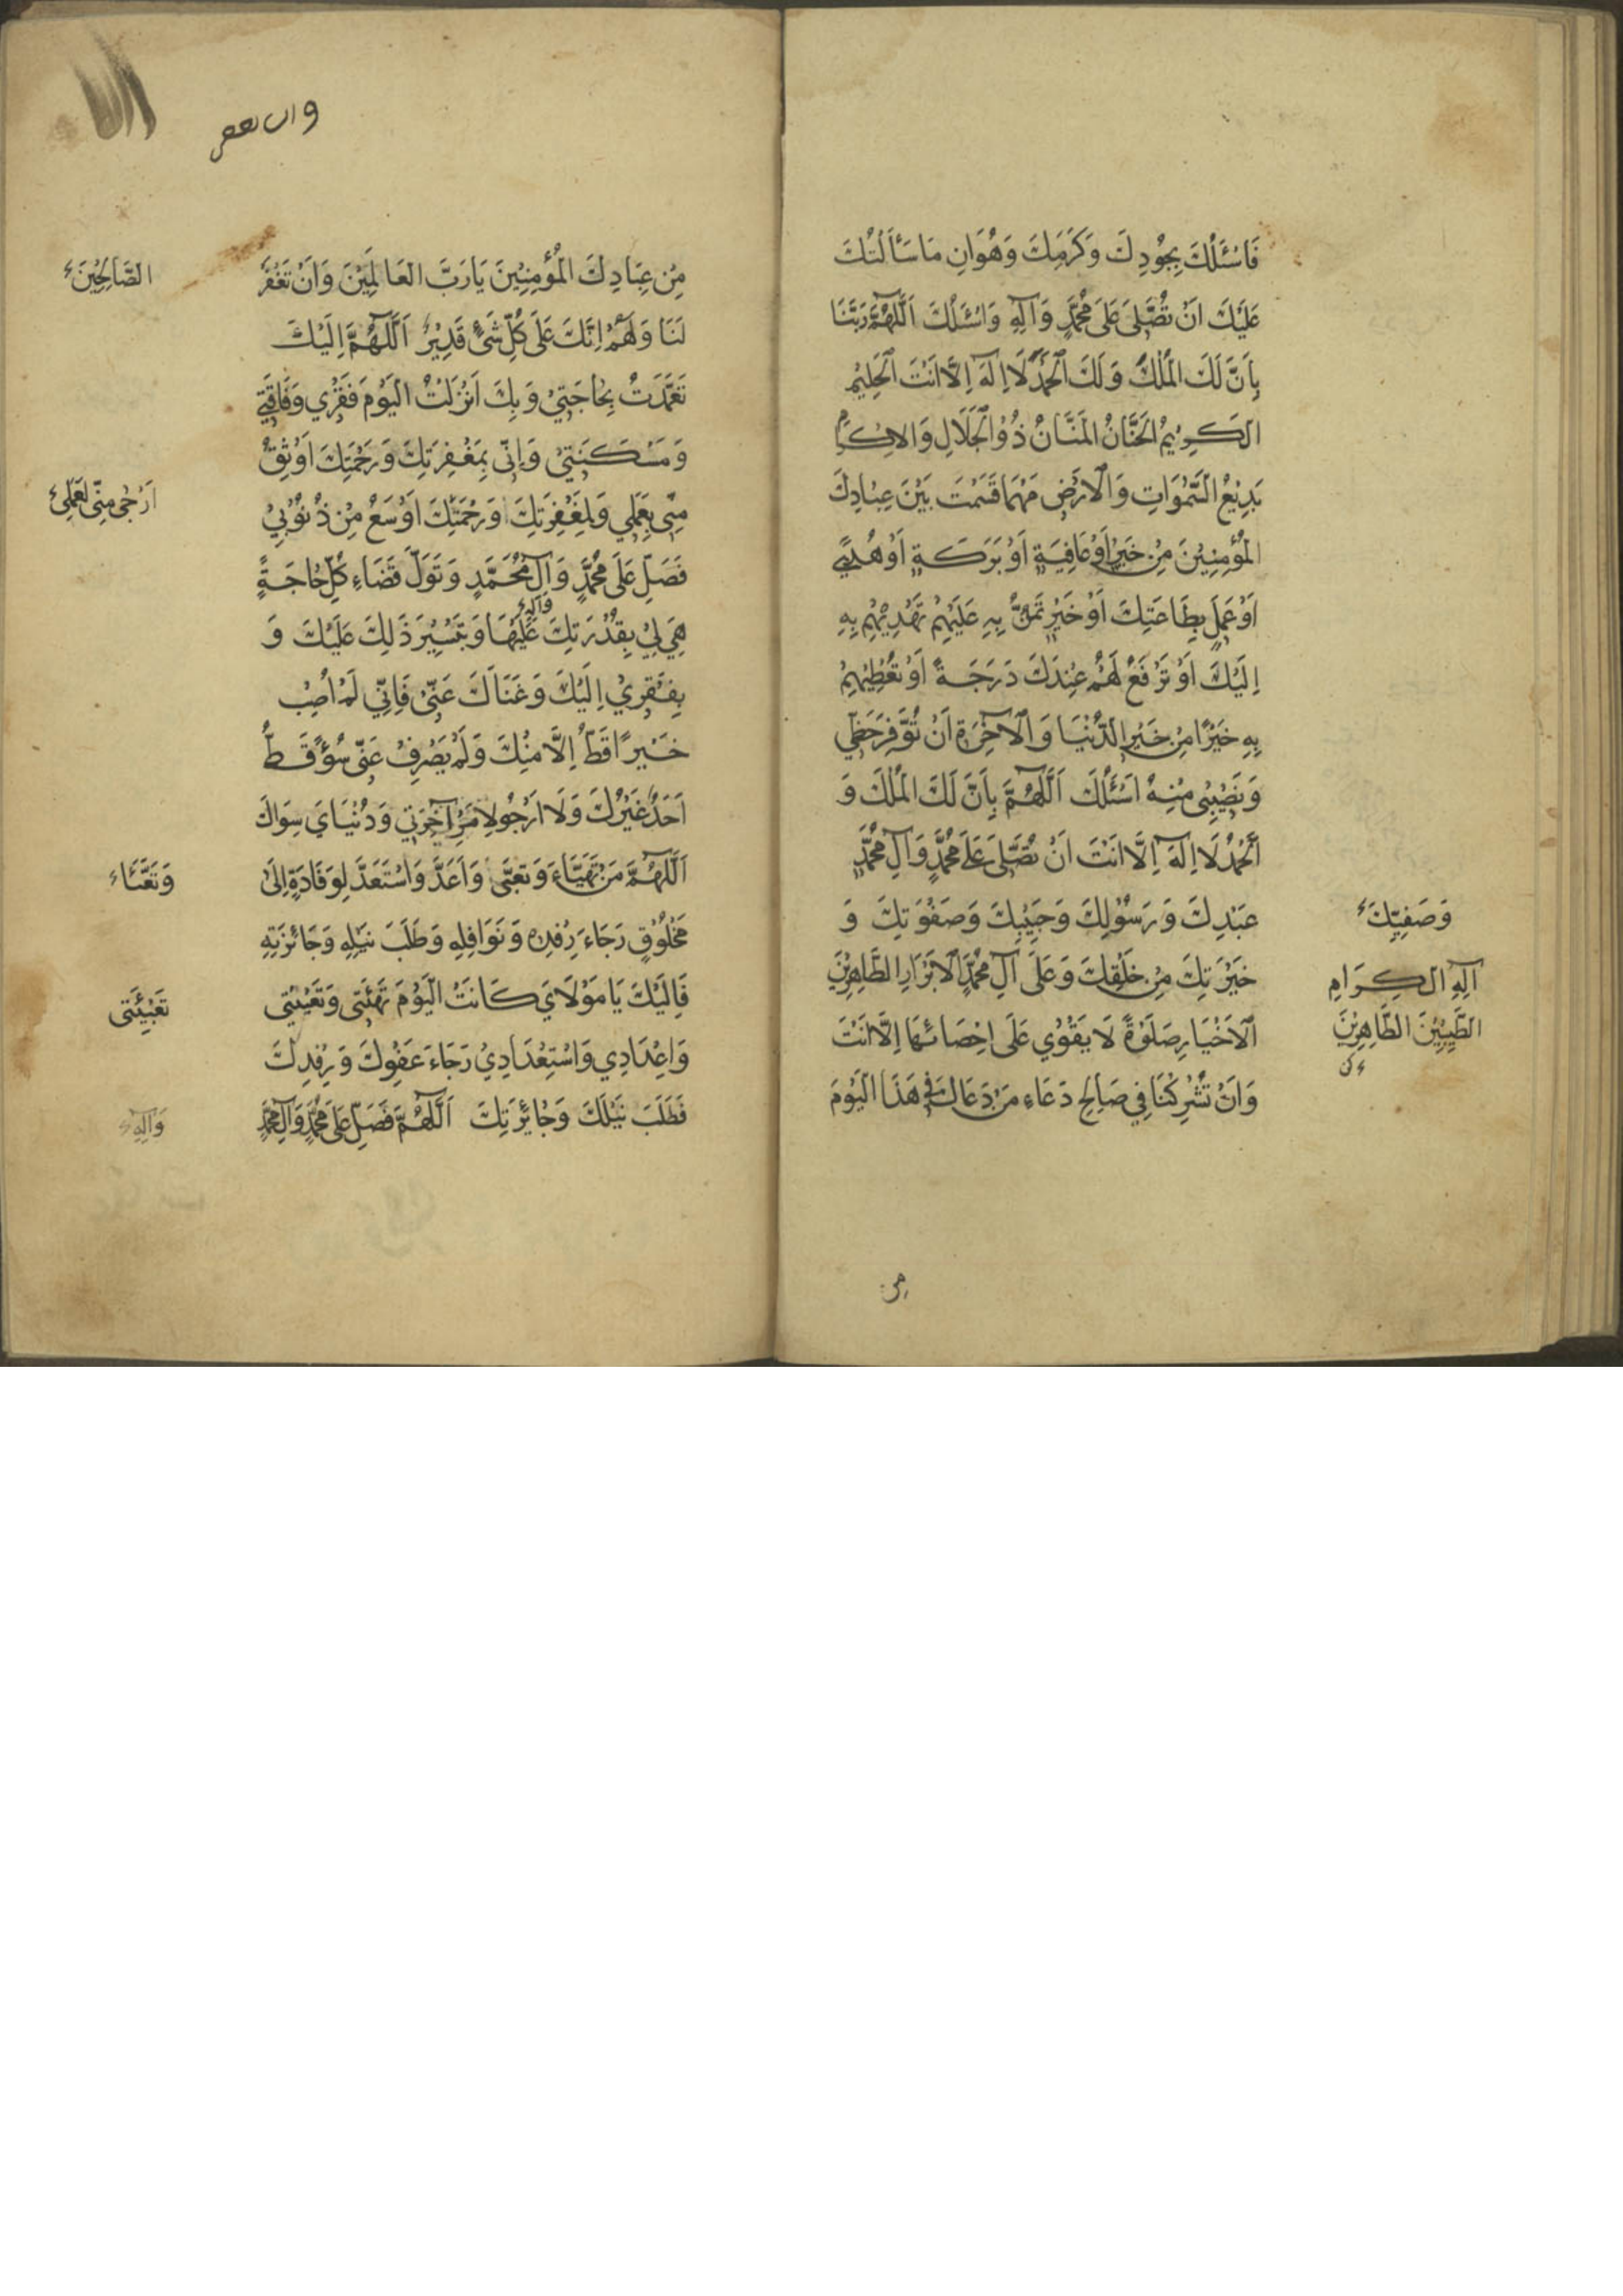 فَاَسْئَلُكَ بِجُودِكَ وَكَرَمِكَ وَهَوَانِ مَا سَأَلْتُكَ
عَلَيْكَ اَنْ تُصَلِّىَ عَلَى مُحَمَّدٍ وَآلِهِ وَاَسْئَلُكَ اَللّٰهُمَّ رَبَّنَا
بِاَنَّ لَكَ الْمُلْكَ وَلَكَ الْحَمْدَ لَا اِلٰهَ اِلَّا اَنْتَ الْحَلِيمُ
الْكَرِيمُ الْحَنَّانُ الْمَنَّانُ ذُو الْجَلَالِ وَالْاِكْرَامِ
بَدِيعُ السَّمٰوَاتِ وَالْاَرْضِ مَهْمَا قَسَمْتَ بَيْنَ عِبَادِكَ
الْمُؤْمِنِينَ مِنْ خَيْرٍ اَوْ عَافِيَةٍ اَوْ بَرَكَةٍ اَوْ هُدًى
اَوْ عَمَلٍ بِطَاعَتِكَ اَوْ خَيْرٍ تَمُنُّ بِهِ عَلَيْهِمْ تَهْدِيهِمْ بِهِ
اِلَيْكَ اَوْ تَرْفَعُ لَهُمْ عِنْدَكَ دَرَجَةً اَوْ تُعْطِيهِمْ
بِهِ خَيْرًا مِنْ خَيْرِ الدُّنْيَا وَالْآخِرَةِ اَنْ تُوَفِّرَ حَظِّي
وَنَصِيبِى مِنْهُ اَسْئَلُكَ اَللّٰهُمَّ بِاَنَّ لَكَ الْمُلْكَ وَ
الْحَمْدُ لَا اِلٰهَ اِلَّا اَنْتَ اَنْ تُصَلِّىَ عَلَى مُحَمَّدٍ وَآلِ مُحَمَّدٍ
عَبْدِكَ وَرَسُولِكَ وَحَبِيبِكَ وَصَفْوَتِكَ وَ
وَصَفِيِّكَ
خِيَرَتِكَ مِنْ خَلْقِكَ وَعَلَى آلِ مُحَمَّدٍ الْاَبْرَارِ الطَّاهِرِينَ
آلِهِ الْكِرَامِ
الْاَخْيَارِ صَلَوٰةً لَا يَقْوٰي عَلَى اِحْصَائِهَا اِلَّا اَنْتَ
الطَّيِّبِينَ الطَّاهِرِينَ
وَاَنْ تُشْرِكَنَا فِي صَالِحِ دُعَاءِ مَنْ دَعَاكَ فِي هَذَا الْيَوْمِ
مِن
مِنْ عِبَادِكَ الْمُؤْمِنِينَ يَا رَبَّ الْعَالَمِينَ وَاَنْ تَغْفِرَ
الصَّالِحِينَ
لَنَا وَلَهُمْ اِنَّكَ عَلَى كُلِّ شَيْءٍ قَدِيرٌ اَللّٰهُمَّ اِلَيْكَ
تَعَمَّدْتُ بِحَاجَتِي وَبِكَ اَنْزَلْتُ الْيَوْمَ فَقْرِي وَفَاقَتِي
وَمَسْكَنَتِي وَاِنِّى بِمَغْفِرَتِكَ وَرَحْمَتِكَ اَوْثَقُ
مِنِّى بِعَمَلِي وَلَمَغْفِرَتُكَ وَرَحْمَتُكَ اَوْسَعُ مِنْ ذُنُوبِي
اَرْجٰى مِنِّى لِعَمَلِى
فَصَلِّ عَلَى مُحَمَّدٍ وَآلِ مُحَمَّدٍ وَتَوَلَّ قَضَاءَ كُلِّ حَاجَةٍ
وَآلِهِ
هِيَ لِي بِقُدْرَتِكَ عَلَيْهَا وَتَيْسِيرِ ذَلِكَ عَلَيْكَ وَ
بِفَقْرِي اِلَيْكَ وَغَنَاكَ عَنِّى فَاِنِّي لَمْ اُصِبْ
خَيْرًا قَطُّ اِلَّا مِنْكَ وَلَمْ يَصْرِفْ عَنِّى سُوءً قَطُّ
اَحَدٌ غَيْرُكَ وَلَا اَرْجُو لِاَمْرِ آخِرَتِي وَدُنْيَايَ سِوَاكَ
اَللّٰهُمَّ مَنْ تَهَيَّاَ وَتَعَبَّى وَاَعَدَّ وَاسْتَعَدَّ لِوَفَادَةٍ اِلَى
وَتَعَبَّاَ
مَخْلُوقٍ رَجَاءَ رِفْدِهِ وَنَوَافِلِهِ وَطَلَبَ نَيْلِهِ وَجَائِزَتِهِ
فَاِلَيْكَ يَا مَوْلَايَ كَانَتْ الْيَوْمَ تَهْيِئَتِى وَتَعْبِيَتِى
تَعْبِئَتِى
وَاِعْدَادِي وَاسْتِعْدَادِي رَجَاءَ عَفْوِكَ وَرِفْدِكَ
فَطَلَبَ نَيْلَكَ وَجَائِزَتِكَ اَللّٰهُمَّ فَصَلِّ عَلَى مُحَمَّدٍ وَآلِ مُحَمَّدٍ
وَآلِهِ